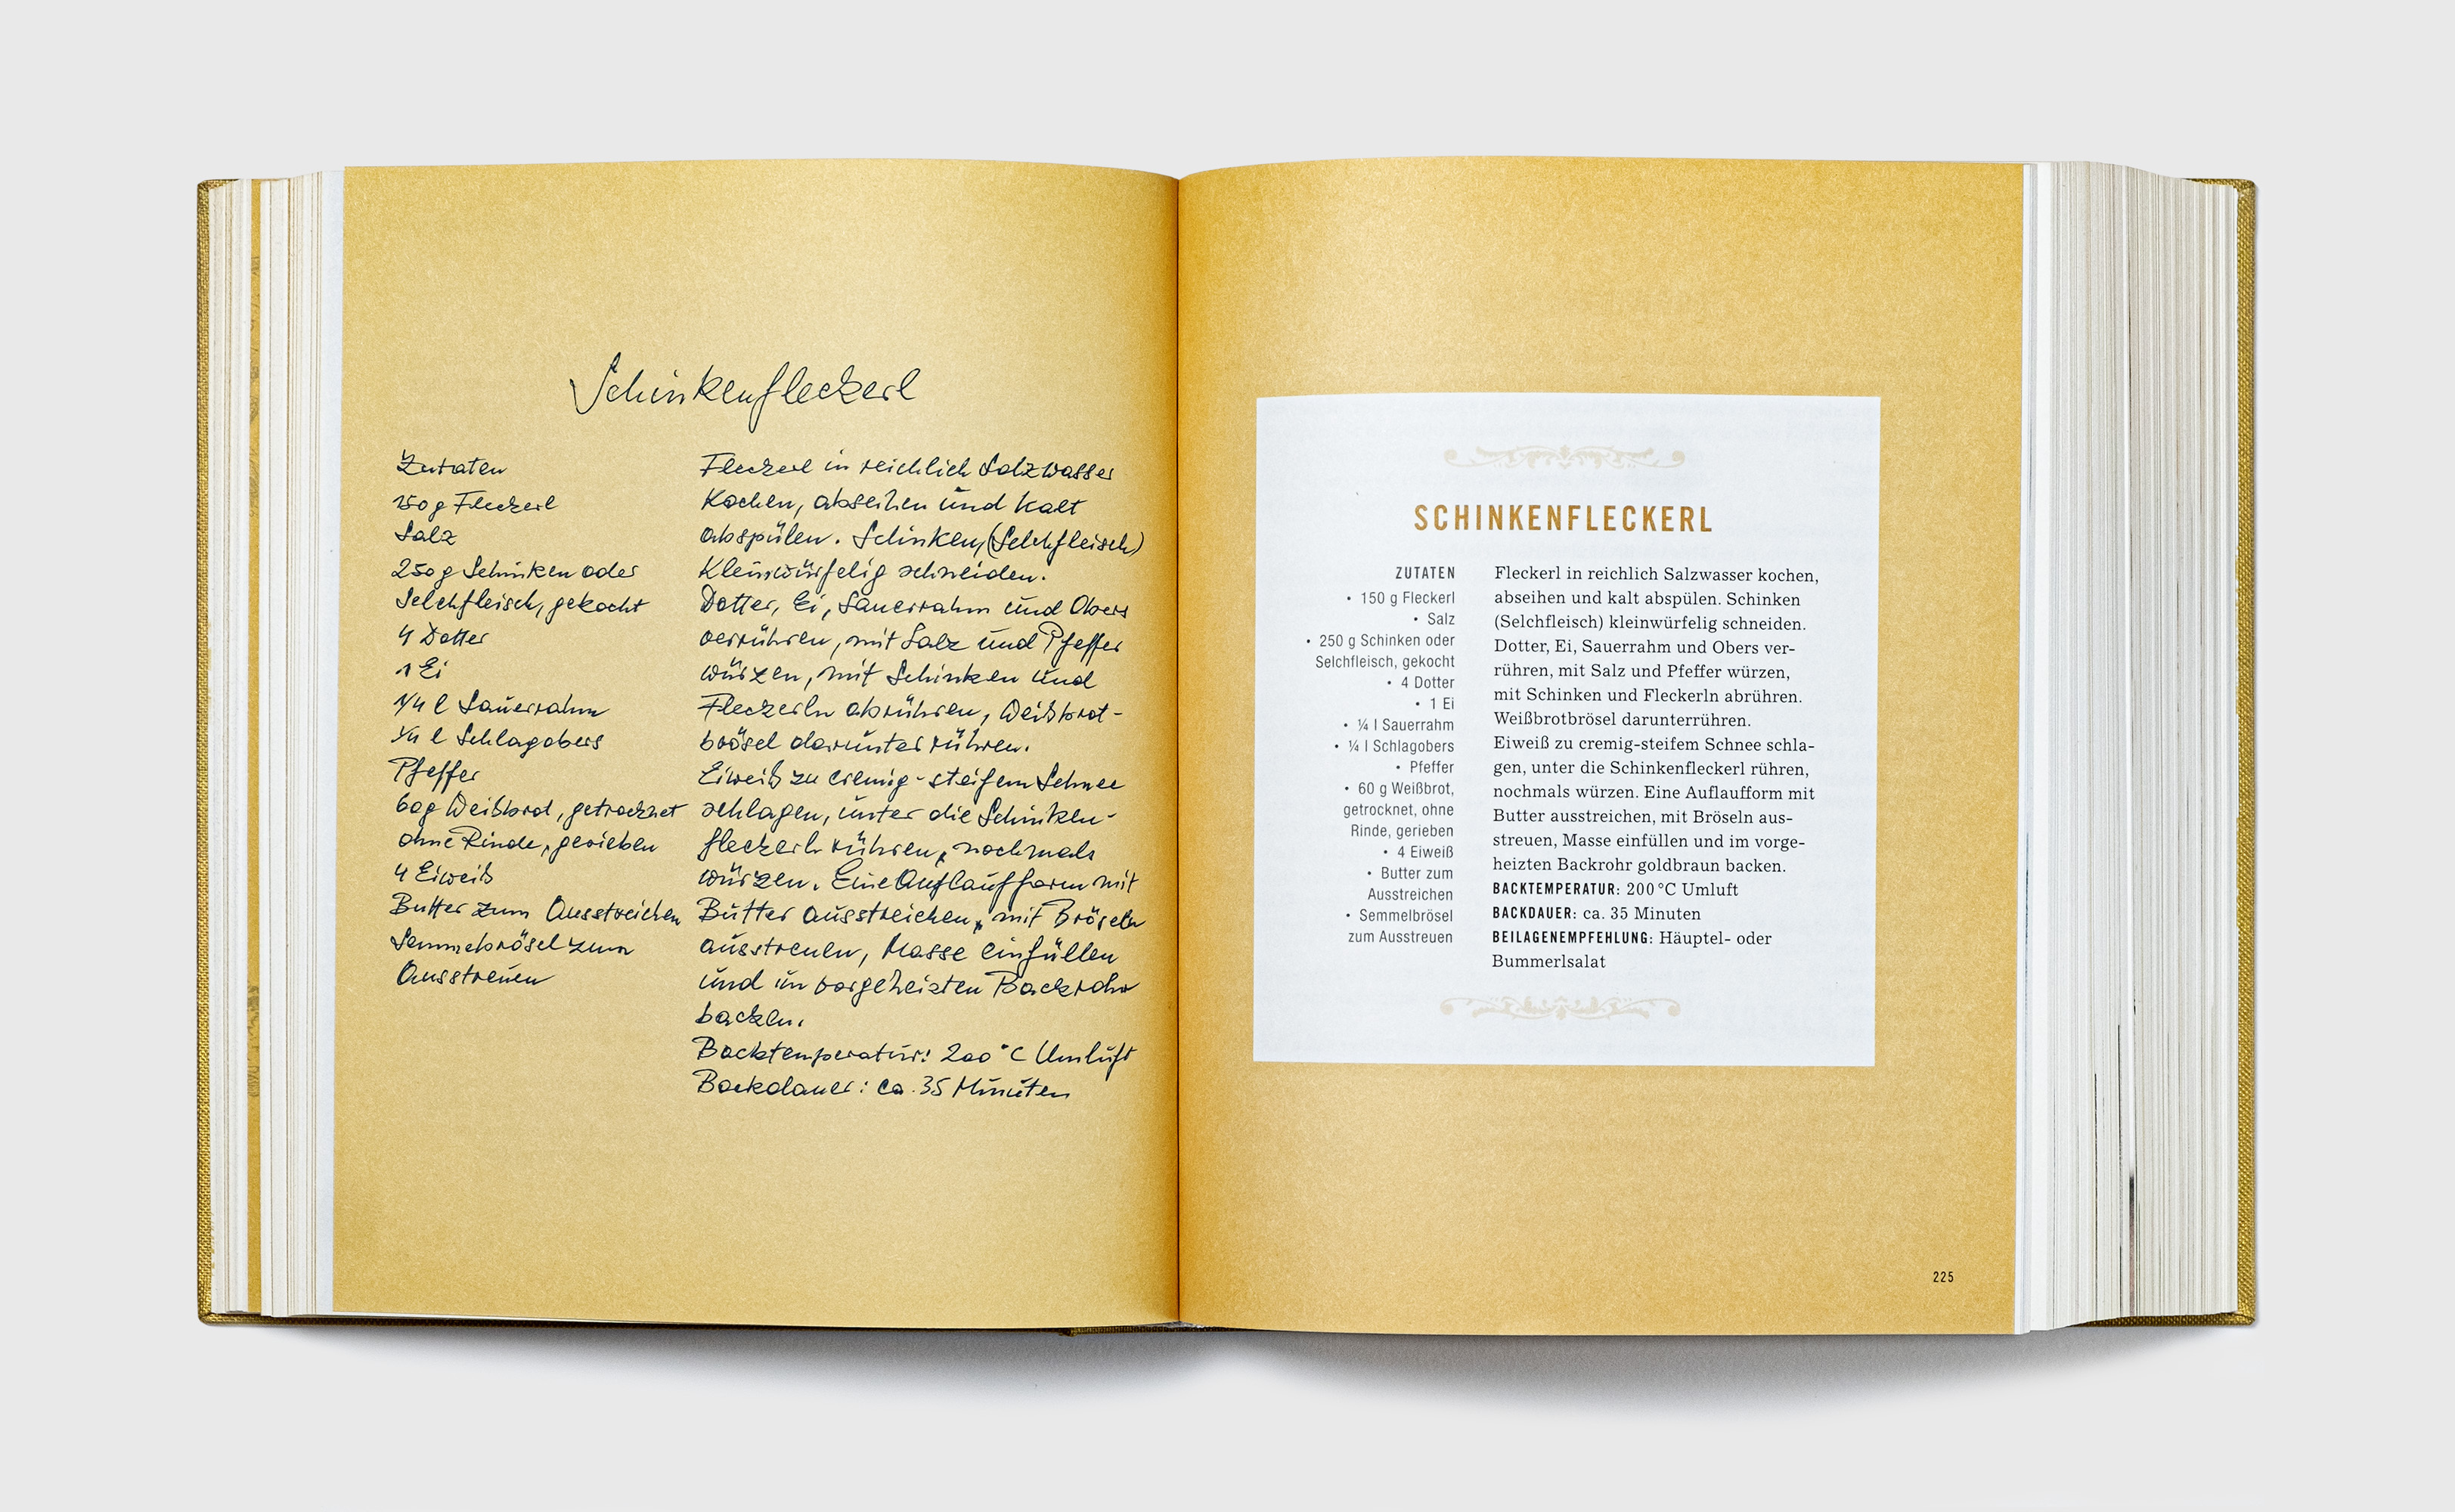 Schinkenfleckerl
Zutaten
150 g Fleckerl
Salz
250 g Schinken oder
Selchfleisch, gekocht
4 Dotter
1 Ei
1/4 l Sauerrahm
1/4 l Schlagobers
Pfeffer
60 g Weißbrot, getrocknet
ohne Rinde, gerieben
4 Eiweiß
Butter zum Ausstreichen
Semmelbrösel zum
Ausstreuen
Fleckerl in reichlich Salzwasser
kochen, abseihen und kalt
abspülen. Schinken (Selchfleisch)
kleinwürfelig schneiden.
Dotter, Ei, Sauerrahm und Obers
verrühren, mit Salz und Pfeffer
würzen, mit Schinken und
Fleckerln abrühren, Weißbrot-
brösel darunterrühren.
Eiweiß zu cremig-steifem Schnee
schlagen, unter die Schinken-
fleckerl rühren, nochmals
würzen. Eine Auflaufform mit
Butter ausstreichen, mit Bröseln
ausstreuen, Masse einfüllen
und im vorgeheizten Backrohr
backen.
Backtemperatur: 200°C Umluft
Backdauer: ca. 35 Minuten
SCHINKENFLECKERL
ZUTATEN
• 150 g Fleckerl
• Salz
• 250 g Schinken oder
Selchfleisch, gekocht
• 4 Dotter
• 1 Ei
• ¼ l Sauerrahm
• ¼ l Schlagobers
• Pfeffer
• 60 g Weißbrot,
getrocknet, ohne
Rinde, gerieben
• 4 Eiweiß
• Butter zum
Ausstreichen
• Semmelbrösel
zum Ausstreuen
Fleckerl in reichlich Salzwasser kochen,
abseihen und kalt abspülen. Schinken
(Selchfleisch) kleinwürfelig schneiden.
Dotter, Ei, Sauerrahm und Obers ver-
rühren, mit Salz und Pfeffer würzen,
mit Schinken und Fleckerln abrühren.
Weißbrotbrösel darunterrühren.
Eiweiß zu cremig-steifem Schnee schla-
gen, unter die Schinkenfleckerl rühren,
nochmals würzen. Eine Auflaufform mit
Butter ausstreichen, mit Bröseln aus-
streuen, Masse einfüllen und im vorge-
heizten Backrohr goldbraun backen.
BACKTEMPERATUR: 200 °C Umluft
BACKDAUER: ca. 35 Minuten
BEILAGENEMPFEHLUNG: Häuptel- oder
Bummerlsalat
225